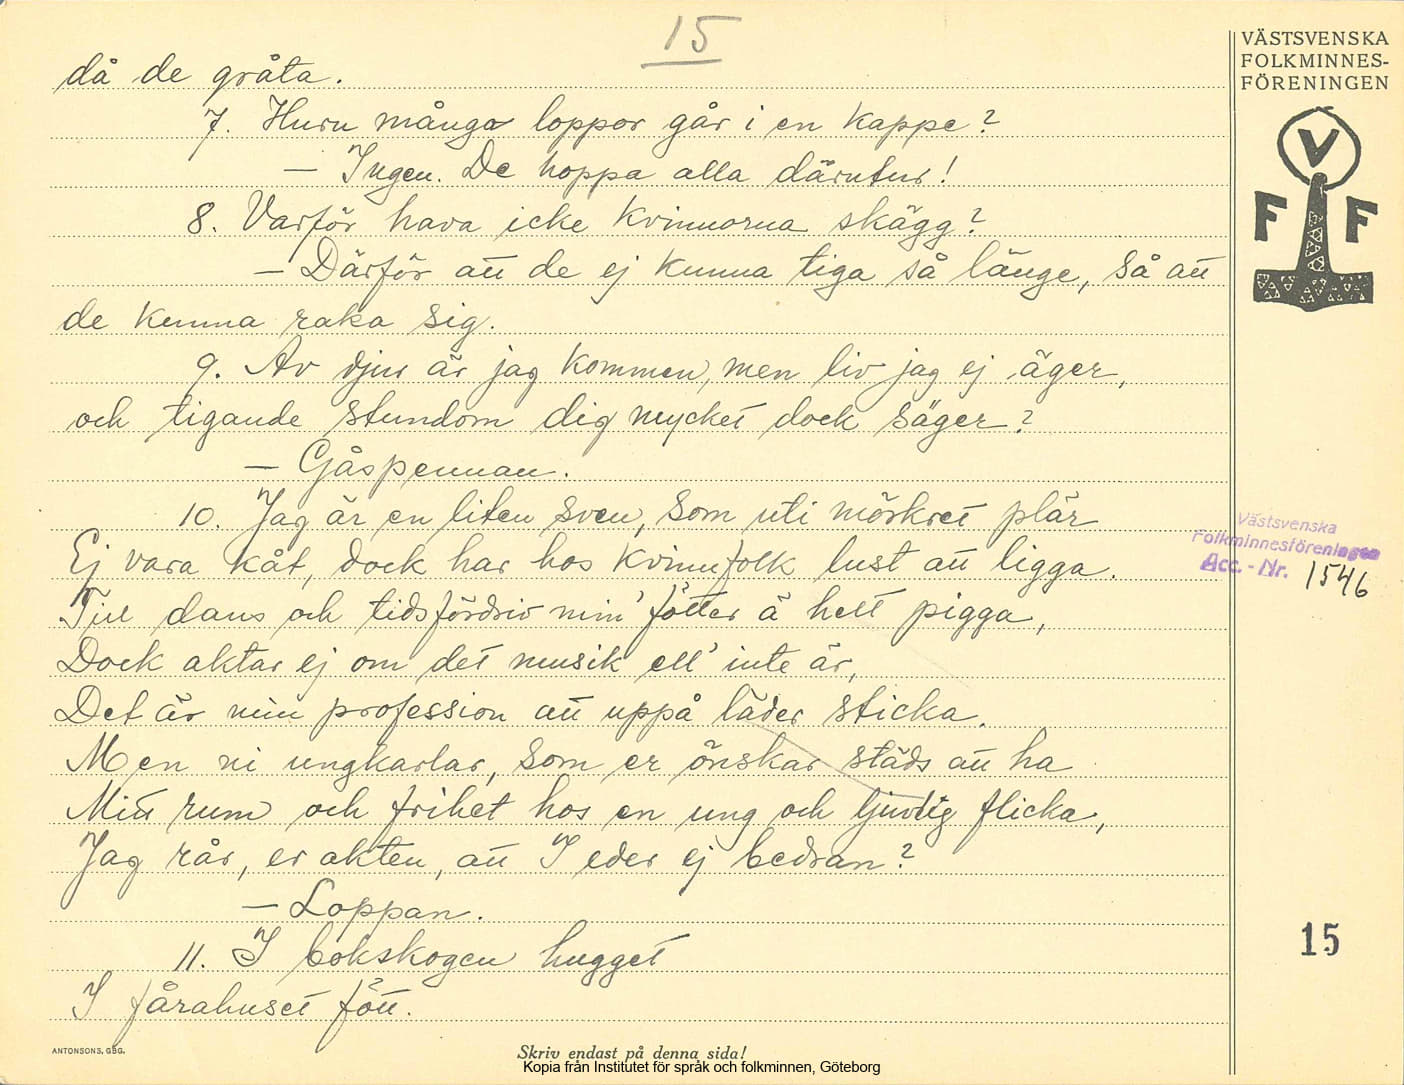 15
då de gråta.
7. Huru många loppor går i en kappe?
– Ingen. De hoppa alla därutur!
8. Varför hava icke kvinnorna skägg?
– Därför att de ej kunna tiga så länge, så att
de kunna raka sig.
9. Av djur är jag kommen, men liv jag ej äger,
och tigande stundom dig mycket dock säger?
– Gåspennan.
10. Jag är en liten sven, som uti mörkret plär
Ej vara kåt, dock har hos kvinnfolk lust att ligga.
Till dans och tidsfördriv min' fötter ä helt pigga,
Dock aktar ej om det musik ell' inte är,
Det är min profession att uppå läder sticka.
Men ni ungkarlar, som er önskar städs att ha
Mitt rum och frihet hos en ung och ljuvlig flicka,
Jag rår, er akten, att I eder ej bedran?
– Loppan.
11. I bokskogen hugget
I fårahuset fött.
VÄSTSVENSKA
FOLKMINNES-
FÖRENINGEN
V
F F
Västsvenska
Folkminnesföreningen
Acc.-Nr. 1546
15
ANTONSONS, GBG.
Skriv endast på denna sida!
Kopia från Institutet för språk och folkminnen, Göteborg